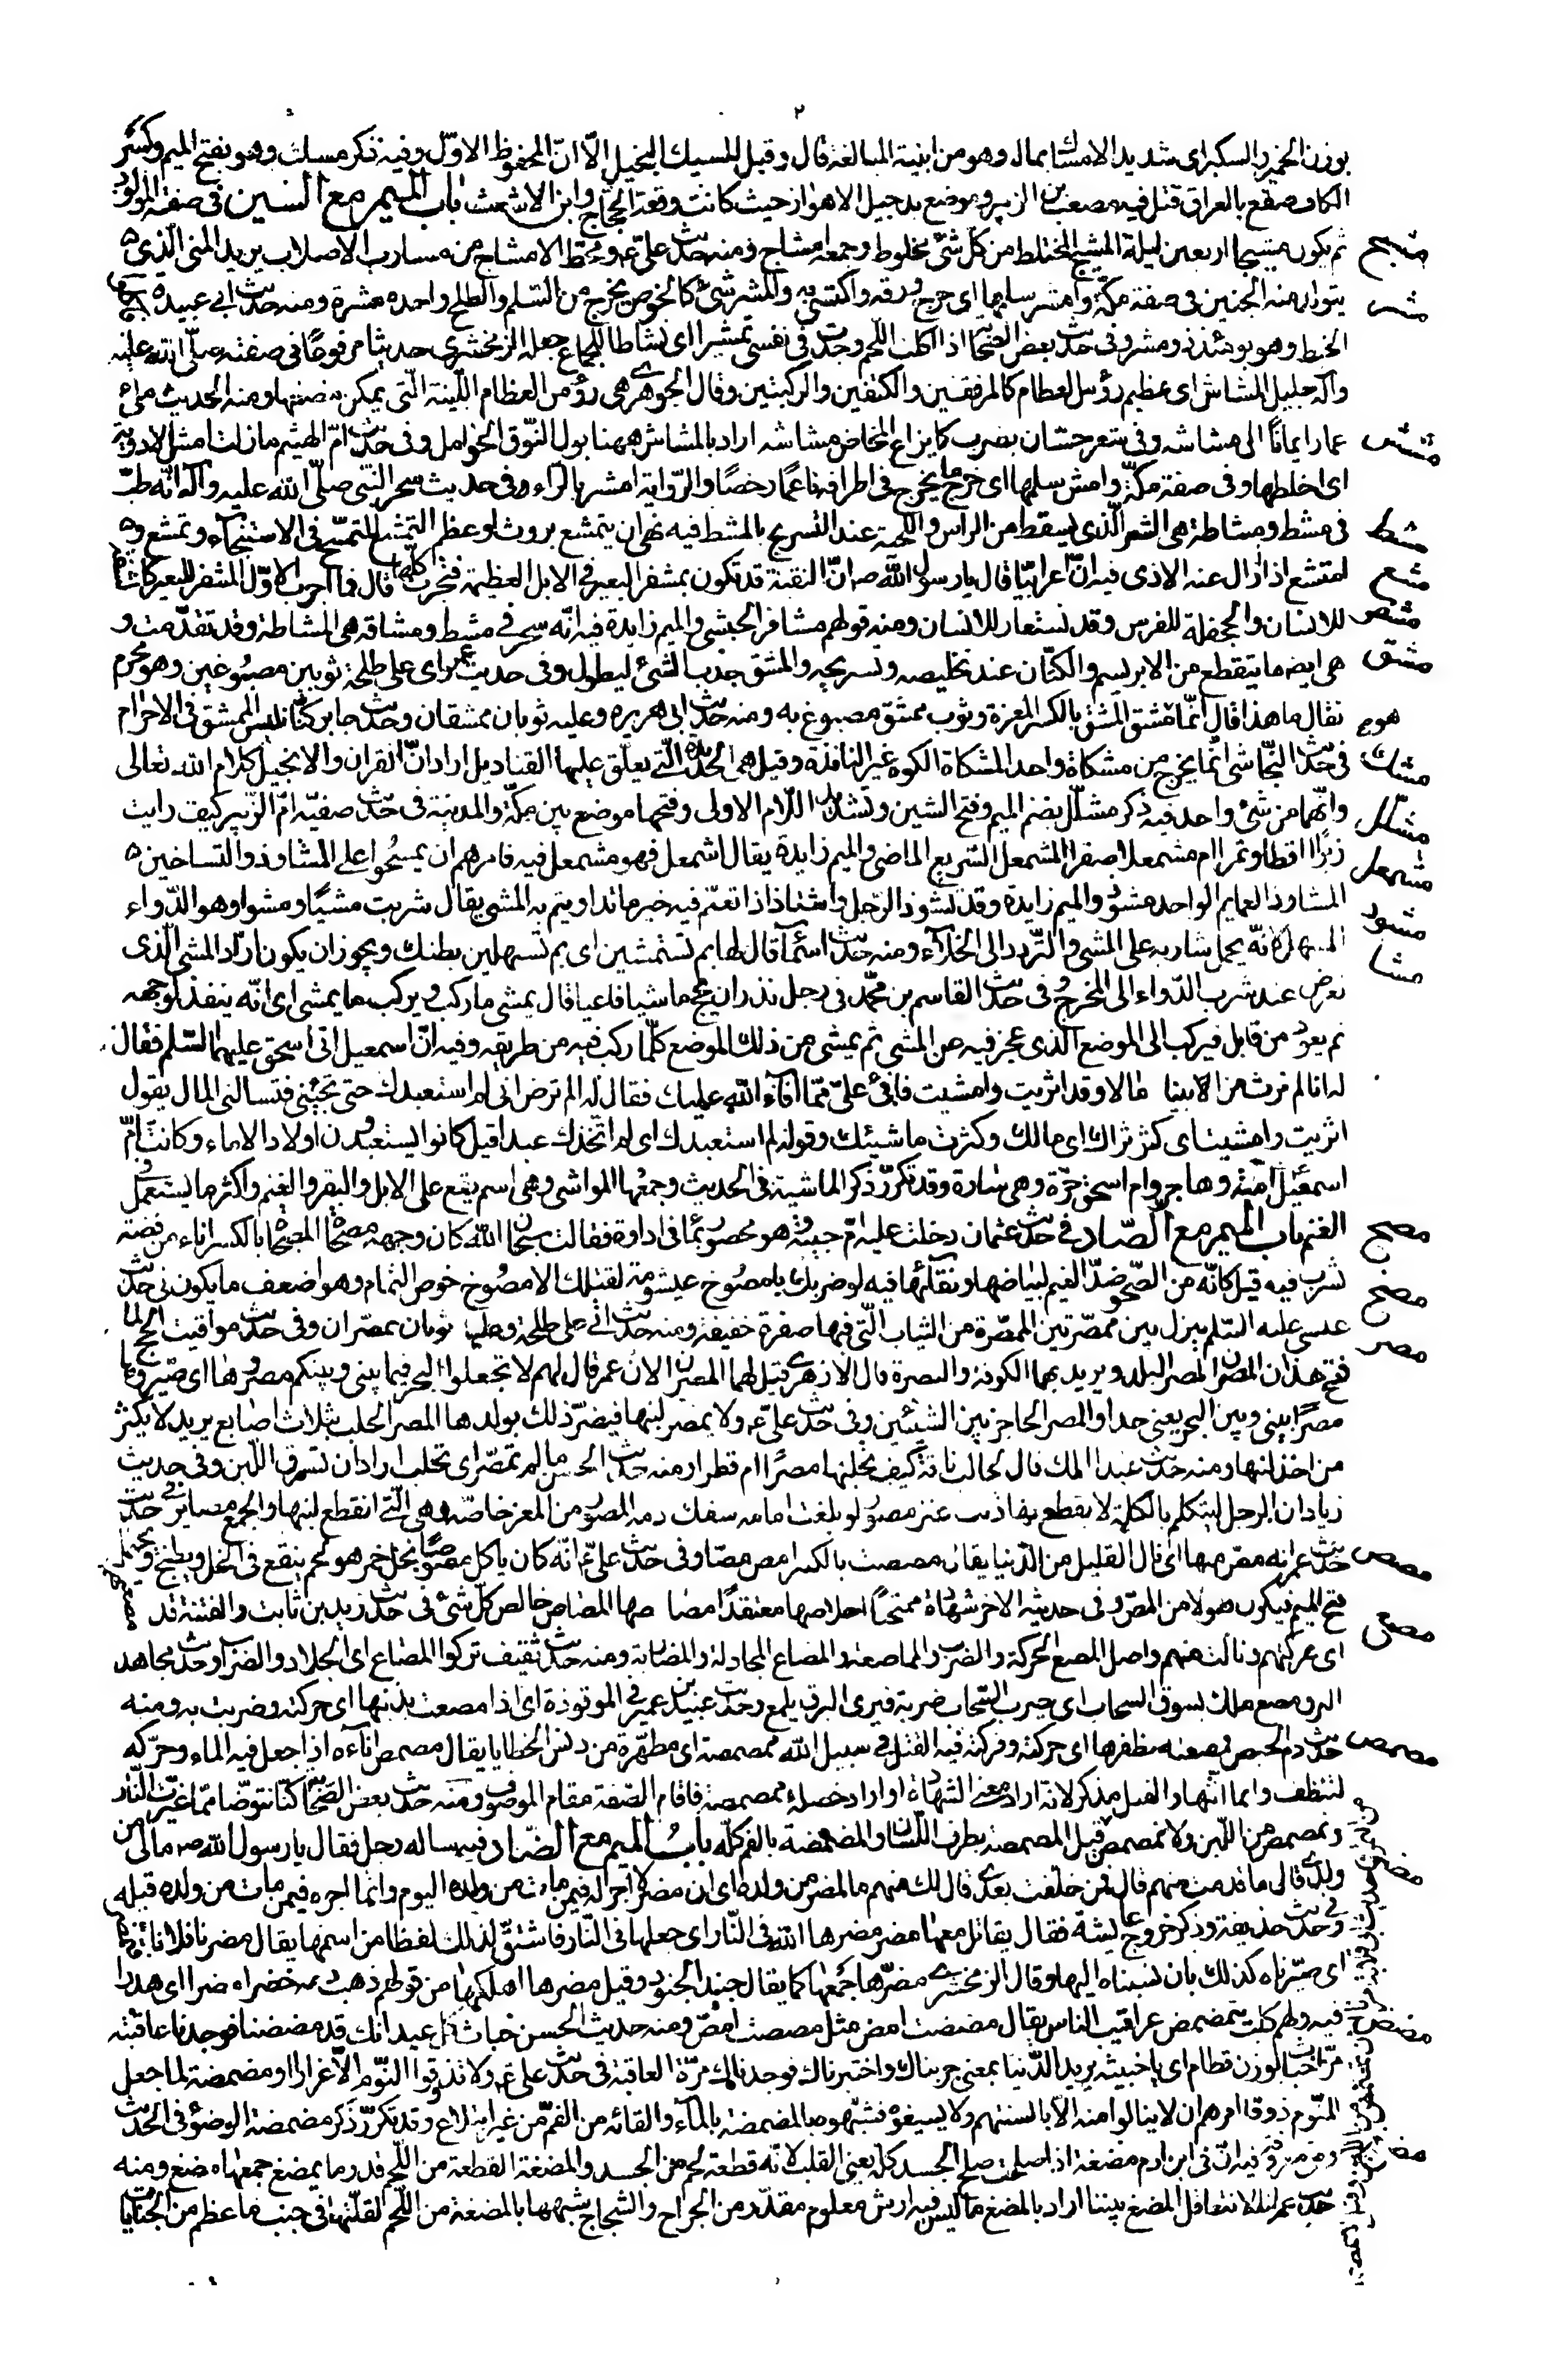 بوزن الخمير والسكير اى شديد الامساك بماله وهو من ابنية المبالغة قال وقيل المسيك البخيل الّا انّ المحفوظ الاوّل وفيه ذكر مسك وهو بفتح الميم وكسر
الكاف صقع بالعراق قتل فيه مصعب بن الزبير وموضع بدجيل الاهواز حيث كانت وقعة الحجّاج وابن الاشعث باب الميم مع الشين فى صفة المولود
مشج ثم يكون مشيجا اربعين ليلة المشيج المختلط من كلّ شئ مخلوط وجمعه امشاج ومنه حديث علىّ ع ومحطّ الامشاج من مسارب الاصلاب يريد المنى الّذى
مشر يتولد منه الجنين فى صفة مكّة وامشر سلمها اى خرج ورقه واكتسى به والمشر شئ كالخوص يخرج من السّلم والطلح واحده مشرة ومنه حديث ابى عبيدة فاكلوا
الخبط وهو يومئذ ذو مشر وفى حديث بعض الصّحابة اذا اكلت اللّحم وجدت فى نفسى تمشيرا اى نشاطا للجماع جعله الزمخشرى حديثا مرفوعًا فى صفته صلّى الله عليه
وآله جليل المشاش اى عظيم رؤس العظام كالمرفقين والكتفين والركبتين وقال الجوهرى هى رؤس العظام اللّينة الّتى يمكن مضغها ومنه الحديث ملئ
مشش عمار ايمانًا الى مشاشه وفى شعر حسّان بضرب كايزاع المخاض مشاشه اراد بالمشاش ههنا بول النّوق الحوامل وفى حديث امّ الهيثم مازلت امش الادوية
اى اخلطها وفى صفة مكّة وامش سلمها اى خرج ما يخرج فى اطرافه ناعمًا رخصًا والرّواية امشر بالراء وفى حديث سحر النّبى صلّى الله عليه وآله انّه طبّ
مشط فى مشط ومشاطة هى الشعر الّذى يسقط من الراس واللّحية عند التّسريح بالمشط فيه نهى ان يتمشع بروث او عظم التمشّع التمسّح فى الاستنجآء وتمشع و
مشع امتشع اذا ازال عنه الاذى فيه انّ اعرابيّا قال يارسول الله ص انّ النقبة قد تكون بمشفر البعير فى الابل العظيمة فتجرب كلّها قال فما اجرب الاوّل المشفر للبعير كالشفة
مشفر للانسان والجحفلة للفرس وقد تستعار للانسان ومنه قولهم مشافر الحبشى والميم زايدة فيه انّه سحر فى مشط ومشاقة هى المشاطة وقد تقدّمت و
مشق هى ايضا ما يتقطع من الابريسم والكتّان عند تخليصه وتسريحه والمشق جذب الشئ ليطول وفى حديث عمر راى على طلحة ثوبين مصبوغين وهو محرم
فقال ما هذا قال انّما هو مشق المشق بالكسر المغرة وثوب ممشّق مصبوغ به ومنه حديث ابى هريرة وعليه ثوبان ممشقان وحديث جابر كنّا نلبس الممشق فى الاحرام
مشك فى حديث النّجاشى انّما يخرج من مشكاة واحد المشكاة الكوة غير النافذة وقيل هى الحديدة الّتى يعلّق عليها القناديل اراد انّ القران والانجيل كلام الله تعالى
مشلل وانّهما من شئ واحد فيه ذكر مشلّل بضم الميم وفتح الشين وتشديد اللام الاولى وفتحها موضع بين مكّة والمدينة فى حديث صفيّه امّ الزبير كيف رايت
مشمعل زبرًا ااقطا وتمرا ام مشمعلا صقرا المشمعل السّريع الماضى والميم زايدة يقال اشمعل فهو مشمعل فيه فامرهم ان يمسحوا على المشاوذ والتساخين
مشوذ المشاوذ العمايم الواحد مشوذ والميم زايدة وقد تشوّذ الرّجل واشتاذ اذا تعمّم فيه خير ما تداويتم به المشى يقال شربت مشيًا ومشوا وهو الدّواء
مشا المسهل لانّه يحمل شاربه على المشى والتّردد الى الخلاء ومنه حديث اسمآ قال لها بم تستمشين اى بم تسهلين بطنك ويجوز ان يكون اراد المشى الّذى
يعرض عند شرب الدّواء الى المخرج وفى حديث القاسم بن محمّد فى رجل نذر ان يحج ماشيا فاعيا قال يمشى ما ركب ويركب ما يمشى اى انّه ينفذ لوجهه
ثم يعود من قابل فيركب الى الموضع الّذى عجز فيه عن المشى ثم يمشى من ذلك الموضع كلّما ركب فيه من طريقه وفيه انّ اسمعيل اتى اسحق عليهما السّلم فقال
له انا لم نرث من ابينا مالا وقد اثريت وامشيت فافئ علىّ ممّا افآء الله عليك فقال له الم ترض انى لم استعبدك حتى تجيئنى فتسالنى المال يقول
اثريت وامشيت اى كثر ثراك اى مالك وكثرت ماشيتك وقوله لم استعبدك اى لم اتخذك عبدا قيل كانوا يستعبدون اولاد الاماء وكانت امّ
اسمعيل امة وهاجر وام اسحق حرّة وهى سارة وقد تكرّر ذكر الماشية فى الحديث وجمعها المواشى وهى اسم يقع على الابل والبقر والغنم واكثر ما يستعمل فى
مصح الغنم باب الميم مع الصّاد فى حديث عثمان دخلت عليه امّ حبيبة وهو محصور بمآ فى اداوة فقالت سبحان الله كان وجهه مصحاة المصحاة بالكسر اناء من فضة
مصخ تشرب فيه قيل كانّه من الصّحو ضدّ الغيم لبياضها ونقائها فيه لو ضربك بامصوخ عيشومة لقتلك الامصوخ خوص الثمام وهو اضعف ما يكون فى حديث
مصر عيسى عليه السّلم ينزل بين ممصّرتين الممصّرة من الثياب الّتى فيها صفرة خفيفة ومنه حديث اتى على طلحة وعليه ثوبان ممصّران وفى حديث مواقيت الحج لما
فتح هذان المصران المصر البلد ويريد بهما الكوفة والبصرة قال الازهرى قيل لهما المصران لان عمر قال لهم لا تجعلوا البحر فيما بينى وبينكم مصّروها اى صيّروها
مصرًا بينى وبين البحر يعنى حدا والمصر الحاجز بين الشيئين وفى حديث علىّ ع ولا يمصر لبنها فيضرّ ذلك بولدها المصر الحلب بثلاث اصابع يريد لا يكثر
من اخذ لبنها ومنه حديث عبد الملك قال لحالب ناقة كيف تحلبها مصرًا ام فطرا ومنه حديث الحسن مالم تمصّر اى تحلب اراد ان تسرق اللّبن وفى حديث
زياد ان الرجل ليتكلم بالكلمة لا يقطع بها ذنب عنز مصور لو بلغت امامه سفك دمه المصور من المعز خاصّة وهى الّتى انقطع لبنها والجمع مصاير فى حديث
مصص حديث عمر انه مصّ منها اى نال القليل من الدّنيا يقال مصصت بالكسر امص مصّا وفى حديث علىّ ع انّه كان ياكل مصوصًا بخل خمر هو لحم ينقع فى الخل ويطبخ ويحتمل
فتح الميم فيكون فعولا من المصّ وفى حديثه الاخر شهادة ممتحنًا اخلاصها معتقدًا مصاصها المصاص خالص كلّ شئ فى حديث زيد بن ثابت والفتنة قد مصعتهم
مصع اى عركتهم ونالت منهم واصل المصع الحركة والضرب والمماصعة والمصاع المجادلة والمضاربة ومنه حديث ثقيف تركوا المصاع اى الجلاد والضراب وحديث مجاهد
البرق مصع ملك يسوق السحاب اى يضرب السّحاب ضربة فيرى البرق يلمع وحديث عبيد بن عمير فى الموقوذة اى اذا مصعت بذنبها اى حركته وضربت به ومنه
مصمص حديث دم الحيض فمصعته بظفرها اى حركته وفركته فيه القتل فى سبيل الله ممصمصة اى مطهّرة من دنس الخطايا يقال مصمص اناءه اذا جعل فيه الماء وحرّكه
لتنظف وانما انّثها والقتل مذكر لانّه اراد معنى الشهادة او اراد خصلة ممصمصة فاقام الصّفة مقام الموصوف ومنه حديث بعض الصّحابة كنّا نتوضّا ممّا غيّرت النّار
ونمصمص من اللّبن ولا نمصمص من التمر قيل المصمصة بطرف اللّسان والمضمضة بالفم كلّه باب الميم مع الضّاد فيه ساله رجل فقال يارسول الله ص مالى من
مضر ولدى قال ما قدمت منهم قال فمن خلفت بعدى قال لك منهم ما لمضر من ولده اى ان مضر لا اجر له فيمن مات من ولده اليوم وانما اجره فيمن مات من ولده قبله
وفى حديث حذيفة وذكر خروج عايشة فقال يقاتل معها مضر مضرها الله فى النّار اى جعلها فى النّار فاشتقّ لذلك لفظا من اسمها يقال مضرنا فلانا فتمضر
اى صيّرناه كذلك بان نسبناه اليها وقال الزمخشرى مضّرها جمعها كما يقال جند الجنود وقيل مضرها اهلكها من قولهم ذهب دمه خضرا مضرا اى هدرا
مضض فيه ولهم كلب يتمضمض عراقيب الناس يقال مضضت امض مثل مصصت امصّ ومنه حديث الحسن خباث كلّ عيدانك قد مضضنا فوجدنا عاقبته
مرّا خباث بوزن قطام اى يا خبيثة يريد الدّنيا بمعنى جربناك واختبرناك فوجدناك مرّة العاقبة فى حديث علىّ ع ولا تذوقوا النّوم الّا غرارا او مضمضة لما جعل
للنوم ذوقا امرهم ان لا ينالوا منه الّا بالسنتهم ولا يسيغوه فشبّهه بالمضمضة بالمآء والقائه من الفم من غير ابتلاع وقد تكرّر ذكر مضمضة الوضوء فى الحديث
مضغ فيه انّ فى ابن ادم مضغة اذا صلحت صلح الجسد كلّه يعنى القلب لانّه قطعة لحم من الجسد والمضغة القطعة من اللّحم قدر ما يمضغ جمعها مضغ ومنه
حديث عمر انا لا نتعاقل المضغ بيننا اراد بالمضغ ما ليس فيه ارش معلوم مقدّر من الجراح والشجاج شبهها بالمضغة من اللّحم لقلّتها فى جنب ما عظم من الجنايات